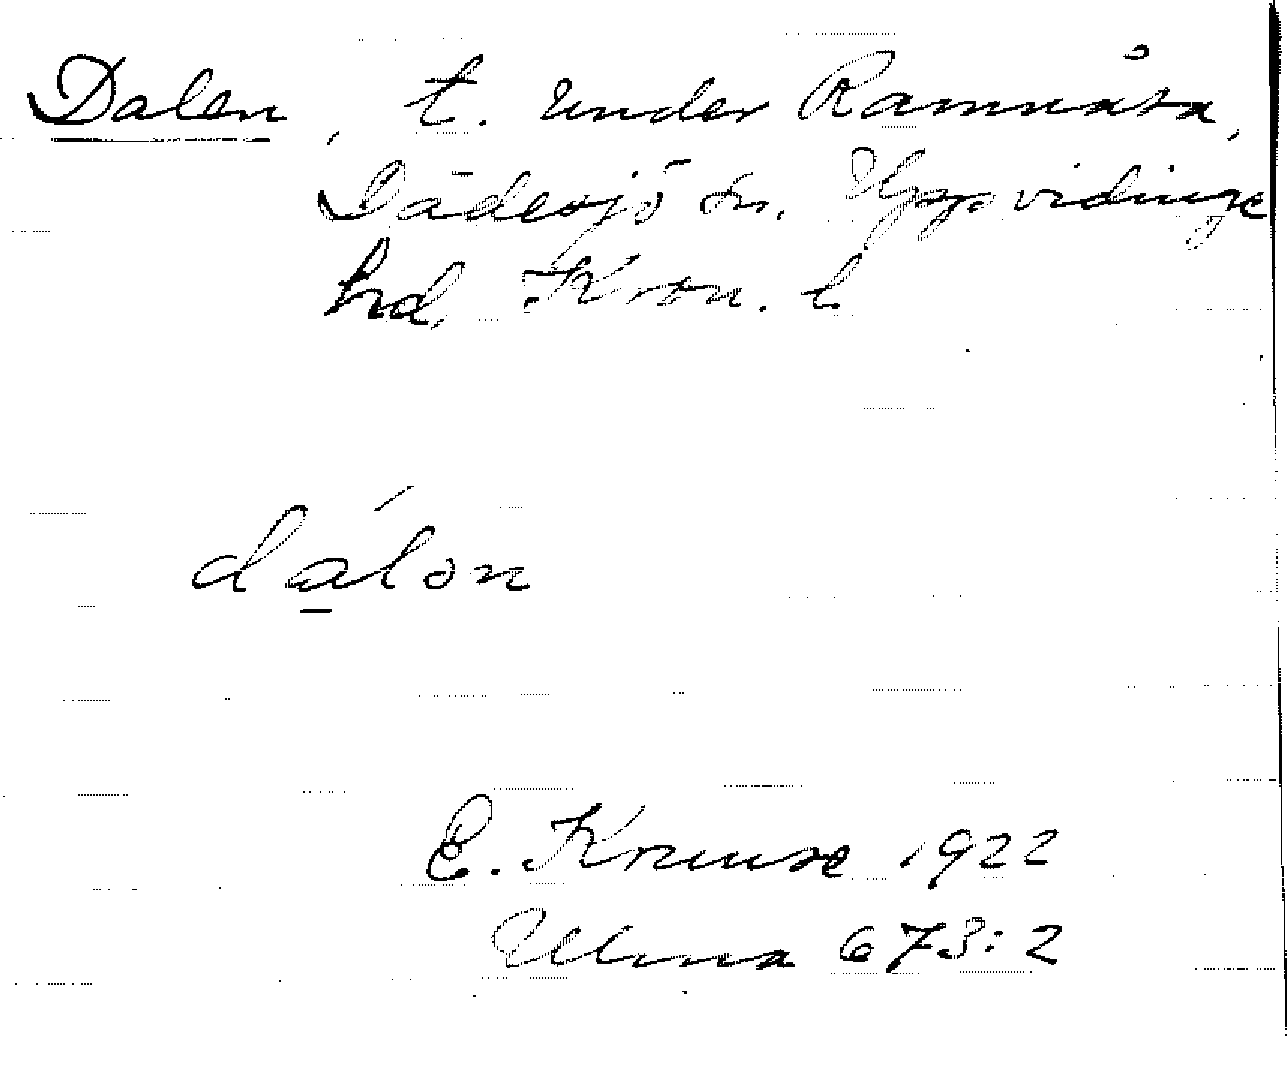 Dalen, t. under Ramnåsa,
Dädesjö sn. Uppvidinge
hd, Kron. l
dálən
E. Kruuse 1922
Ulma 673:2